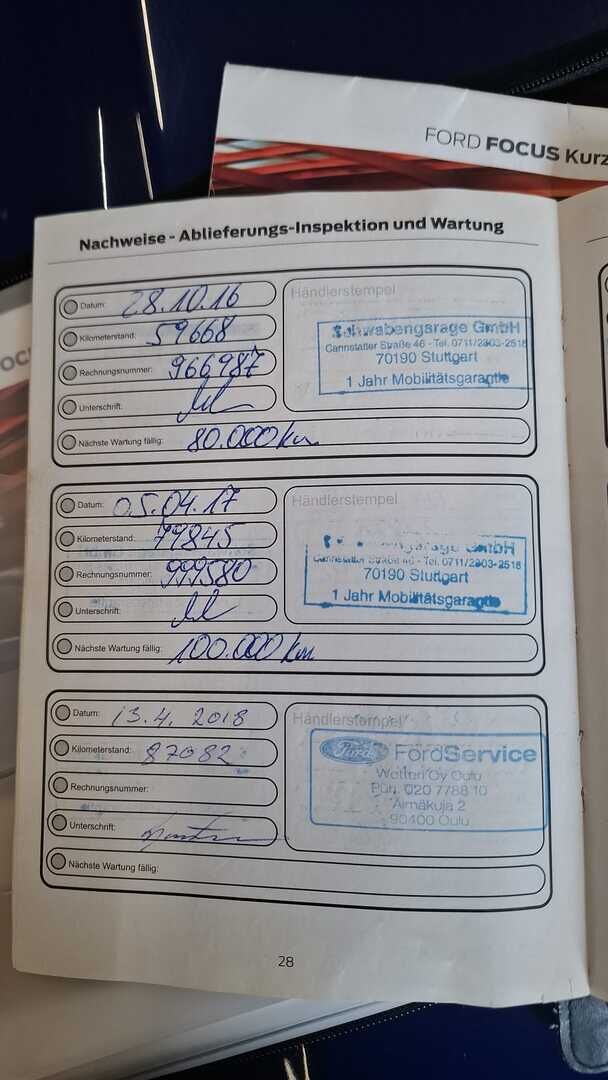 FORD FOCUS Kurz
FOC
Nachweise - Ablieferungs-Inspektion und Wartung
Datum: 28.10.16
Kilometerstand: 59668
Rechnungsnummer: 966987
Unterschrift:
Nächste Wartung fällig: 80.000 km
Händlerstempel
Schwabengarage GmbH
Cannstatter Straße 46 - Tel. 0711/2803-2518
70190 Stuttgart
1 Jahr Mobilitätsgarantie
Datum: 05.04.17
Kilometerstand: 79845
Rechnungsnummer: 999580
Unterschrift:
Nächste Wartung fällig: 100.000 km
Händlerstempel
Schwabengarage GmbH
Cannstatter Straße 46 - Tel. 0711/2803-2518
70190 Stuttgart
1 Jahr Mobilitätsgarantie
Datum: 13.4. 2018
Kilometerstand: 87082
Rechnungsnummer:
Unterschrift:
Nächste Wartung fällig:
Händlerstempel
Ford FordService
Wetteri Oy Oulu
Puh. 020 7788 10
Äimäkuja 2
90400 Oulu
28